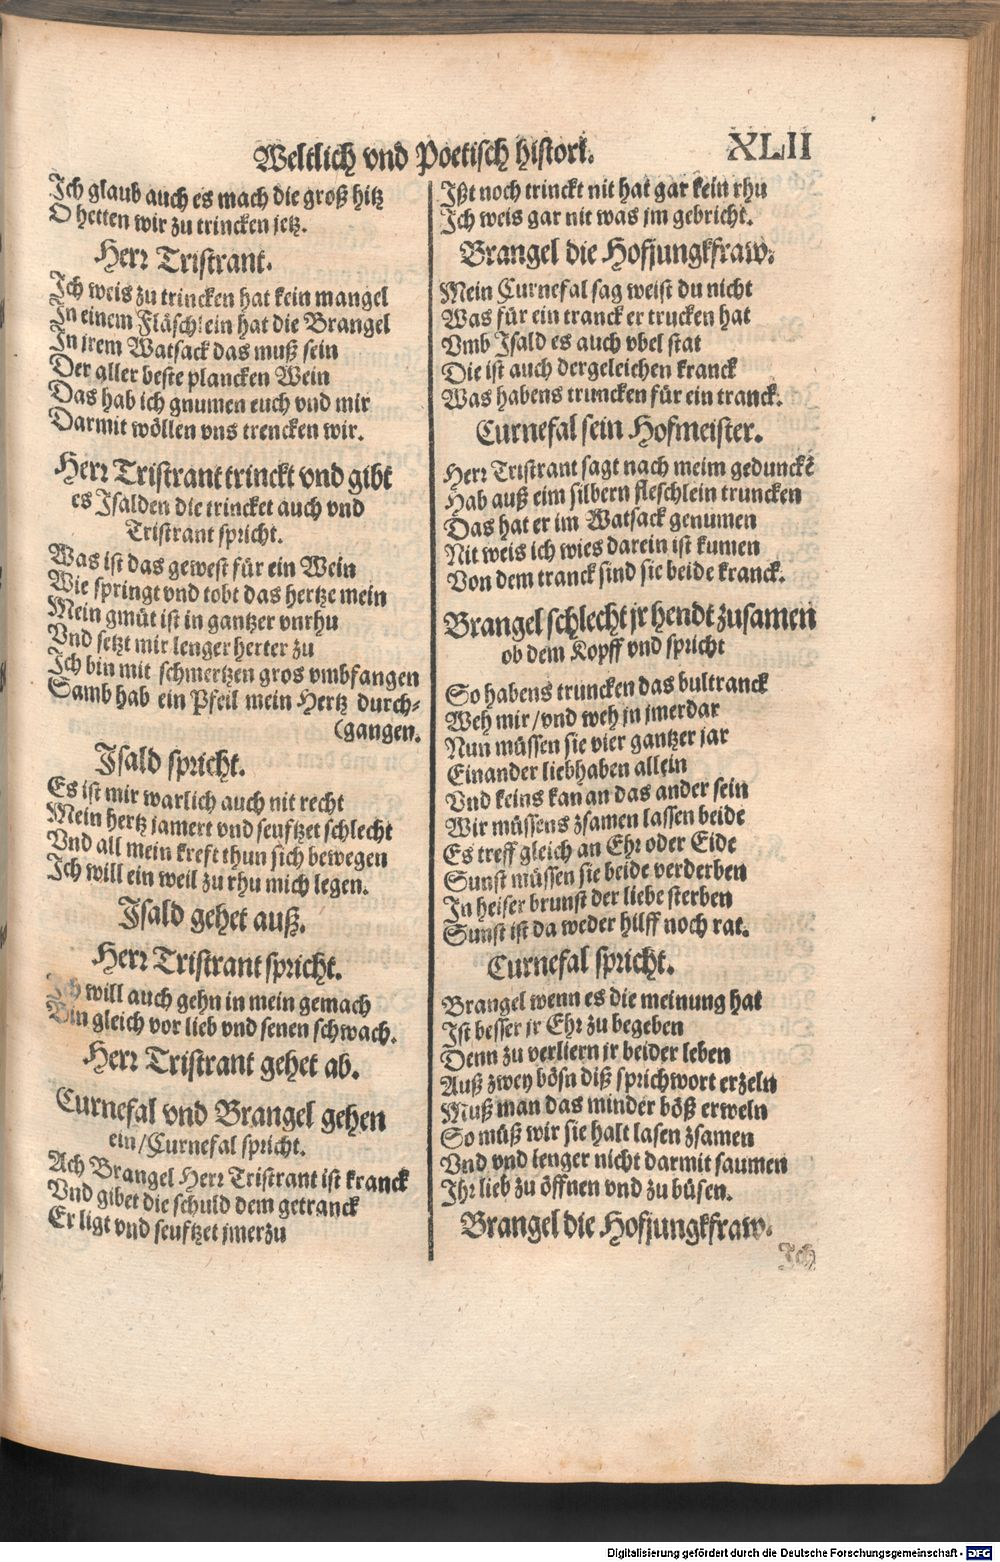 Weltlich vnd Poetisch histori.
XLII
Ich glaub auch es mach die groß hitz
O hetten wir zu trincken jetz.
Herr Tristrant.
Ich weis zu trincken hat kein mangel
In einem Fläschlein hat die Brangel
In irem Watsack das muß sein
Der aller beste plancken Wein
Das hab ich gnumen euch vnd mir
Darmit wöllen vns trencken wir.
Herr Tristrant trinckt vnd gibt
es Isalden die trincket auch vnd
Tristrant spricht.
Was ist das gewest für ein Wein
Wie springt vnd tobt das hertze mein
Mein gmüt ist in gantzer vnrhu
Vnd setzt mir lenger herter zu
Ich bin mit schmertzen gros vmbfangen
Samb hab ein Pfeil mein Hertz durch-
(gangen.
Isald spricht.
Es ist mir warlich auch nit recht
Mein hertz jamert vnd seufftzet schlecht
Vnd all mein kreft thun sich bewegen
Ich will ein weil zu rhu mich legen.
Isald gehet auß.
Herr Tristrant spricht.
Ich will auch gehn in mein gemach
Bin gleich vor lieb vnd senen schwach.
Herr Tristrant gehet ab.
Curnefal vnd Brangel gehen
ein/Curnefal spricht.
Ach Brangel Herr Tristrant ist kranck
Vnd gibet die schuld dem getranck
Er ligt vnd seufftzet jmerzu
Ißt noch trinckt nit hat gar kein rhu
Ich weis gar nit was jm gebricht.
Brangel die Hofjungkfraw.
Mein Curnefal sag weist du nicht
Was für ein tranck er trucken hat
Vmb Isald es auch vbel stat
Die ist auch dergeleichen kranck
Was habens truncken für ein tranck.
Curnefal sein Hofmeister.
Herr Tristrant sagt nach meim geduncke͂
Hab auß eim silbern fleschlein truncken
Das hat er im Watsack genumen
Nit weis ich wies darein ist kumen
Von dem tranck sind sie beide kranck.
Brangel schlecht jr hendt zusamen
ob dem Kopff vnd spricht
So habens truncken das bultranck
Weh mir/vnd weh jn jmerdar
Nun müssen sie vier gantzer jar
Einander liebhaben allein
Vnd keins kan an das ander sein
Wir müssens zsamen lassen beide
Es treff gleich an Ehr oder Eide
Sunst müssen sie beide verderben
In heiser brunst der liebe sterben
Sunst ist da weder hilff noch rat.
Curnefal spricht.
Brangel wenn es die meinung hat
Ist besser jr Ehr zu begeben
Denn zu verliern jr beider leben
Auß zwey bösn diß sprichwort erzeln
Muß man das minder böß erweln
So müß wir sie halt lasen zsamen
Vnd vnd lenger nicht darmit saumen
Ihr lieb zu öffnen vnd zu büsen.
Brangel die Hofjungkfraw.
Ich
Digitalisierung gefördert durch die Deutsche Forschungsgemeinschaft - DFG